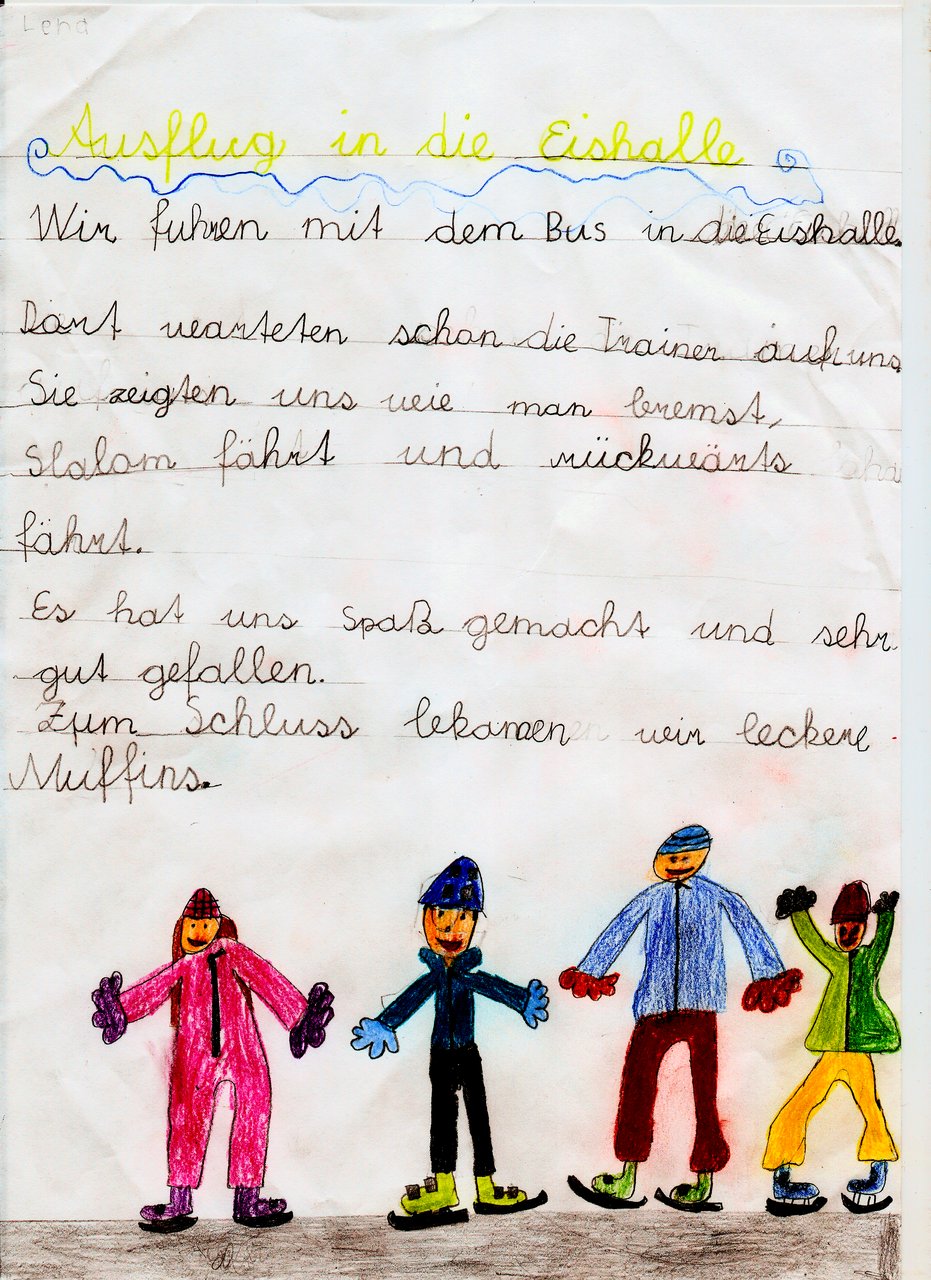 Lena
Ausflug in die Eishalle
Wir fuhren mit dem Bus in die Eishalle.
Dort warteten schon die Trainer auf uns
Sie zeigten uns wie man bremst,
Slalom fährt und rückwärts
fährt.
Es hat uns Spaß gemacht und sehr
gut gefallen.
Zum Schluss bekamen wir leckere
Muffins.